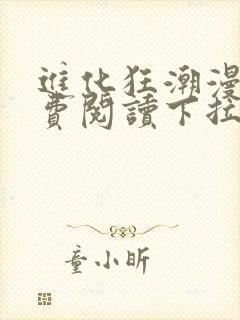 進化狂潮漫
費閱讀下拉
童小昕